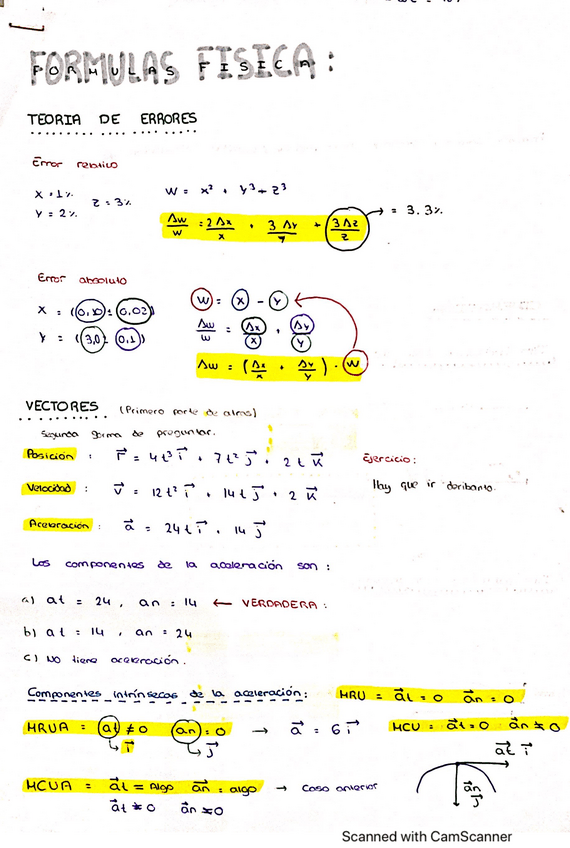 FORMULAS FISICA:
TEORIA DE ERRORES
Error relativo
X = 1%
Y = 2%
Z = 3%
W = x² + y³ + z³
Δw/w = 2Δx/x + 3Δy/y + 3Δz/z → = 3.3%
Error absoluto
X = (0,10 ± 0,02)
Y = (3,0 ± 0,1)
W = X - Y
Δw/w = Δx/x + Δy/y
Δw = (Δx/x + Δy/y) · W
VECTORES (Primera parte de atras)
Segunda forma de preguntar.
Posición : r⃗ = 4t³ i⃗ + 7t² j⃗ + 2t k⃗
Ejercicio:
Velocidad : v⃗ = 12t² i⃗ + 14t j⃗ + 2 k⃗
Hay que ir deribanto.
Aceleración : a⃗ = 24t i⃗ + 14 j⃗
Los componentes de la aceleración son :
a) at = 24, an = 14 ← VERDADERA :
b) at = 14, an = 24
c) No tiene aceleración.
Componentes intrínsecas de la aceleración: MRU = a⃗t = 0 a⃗n = 0
MRUA = at ≠ 0 an = 0 → a⃗ = 6 i⃗ MCU = a⃗t = 0 a⃗n ≠ 0
↳ i⃗ ↳ j⃗
a⃗t i⃗
MCUA = a⃗t = Algo a⃗n = algo → Caso anterior
a⃗t ≠ 0 a⃗n ≠ 0
a⃗n
j⃗
Scanned with CamScanner